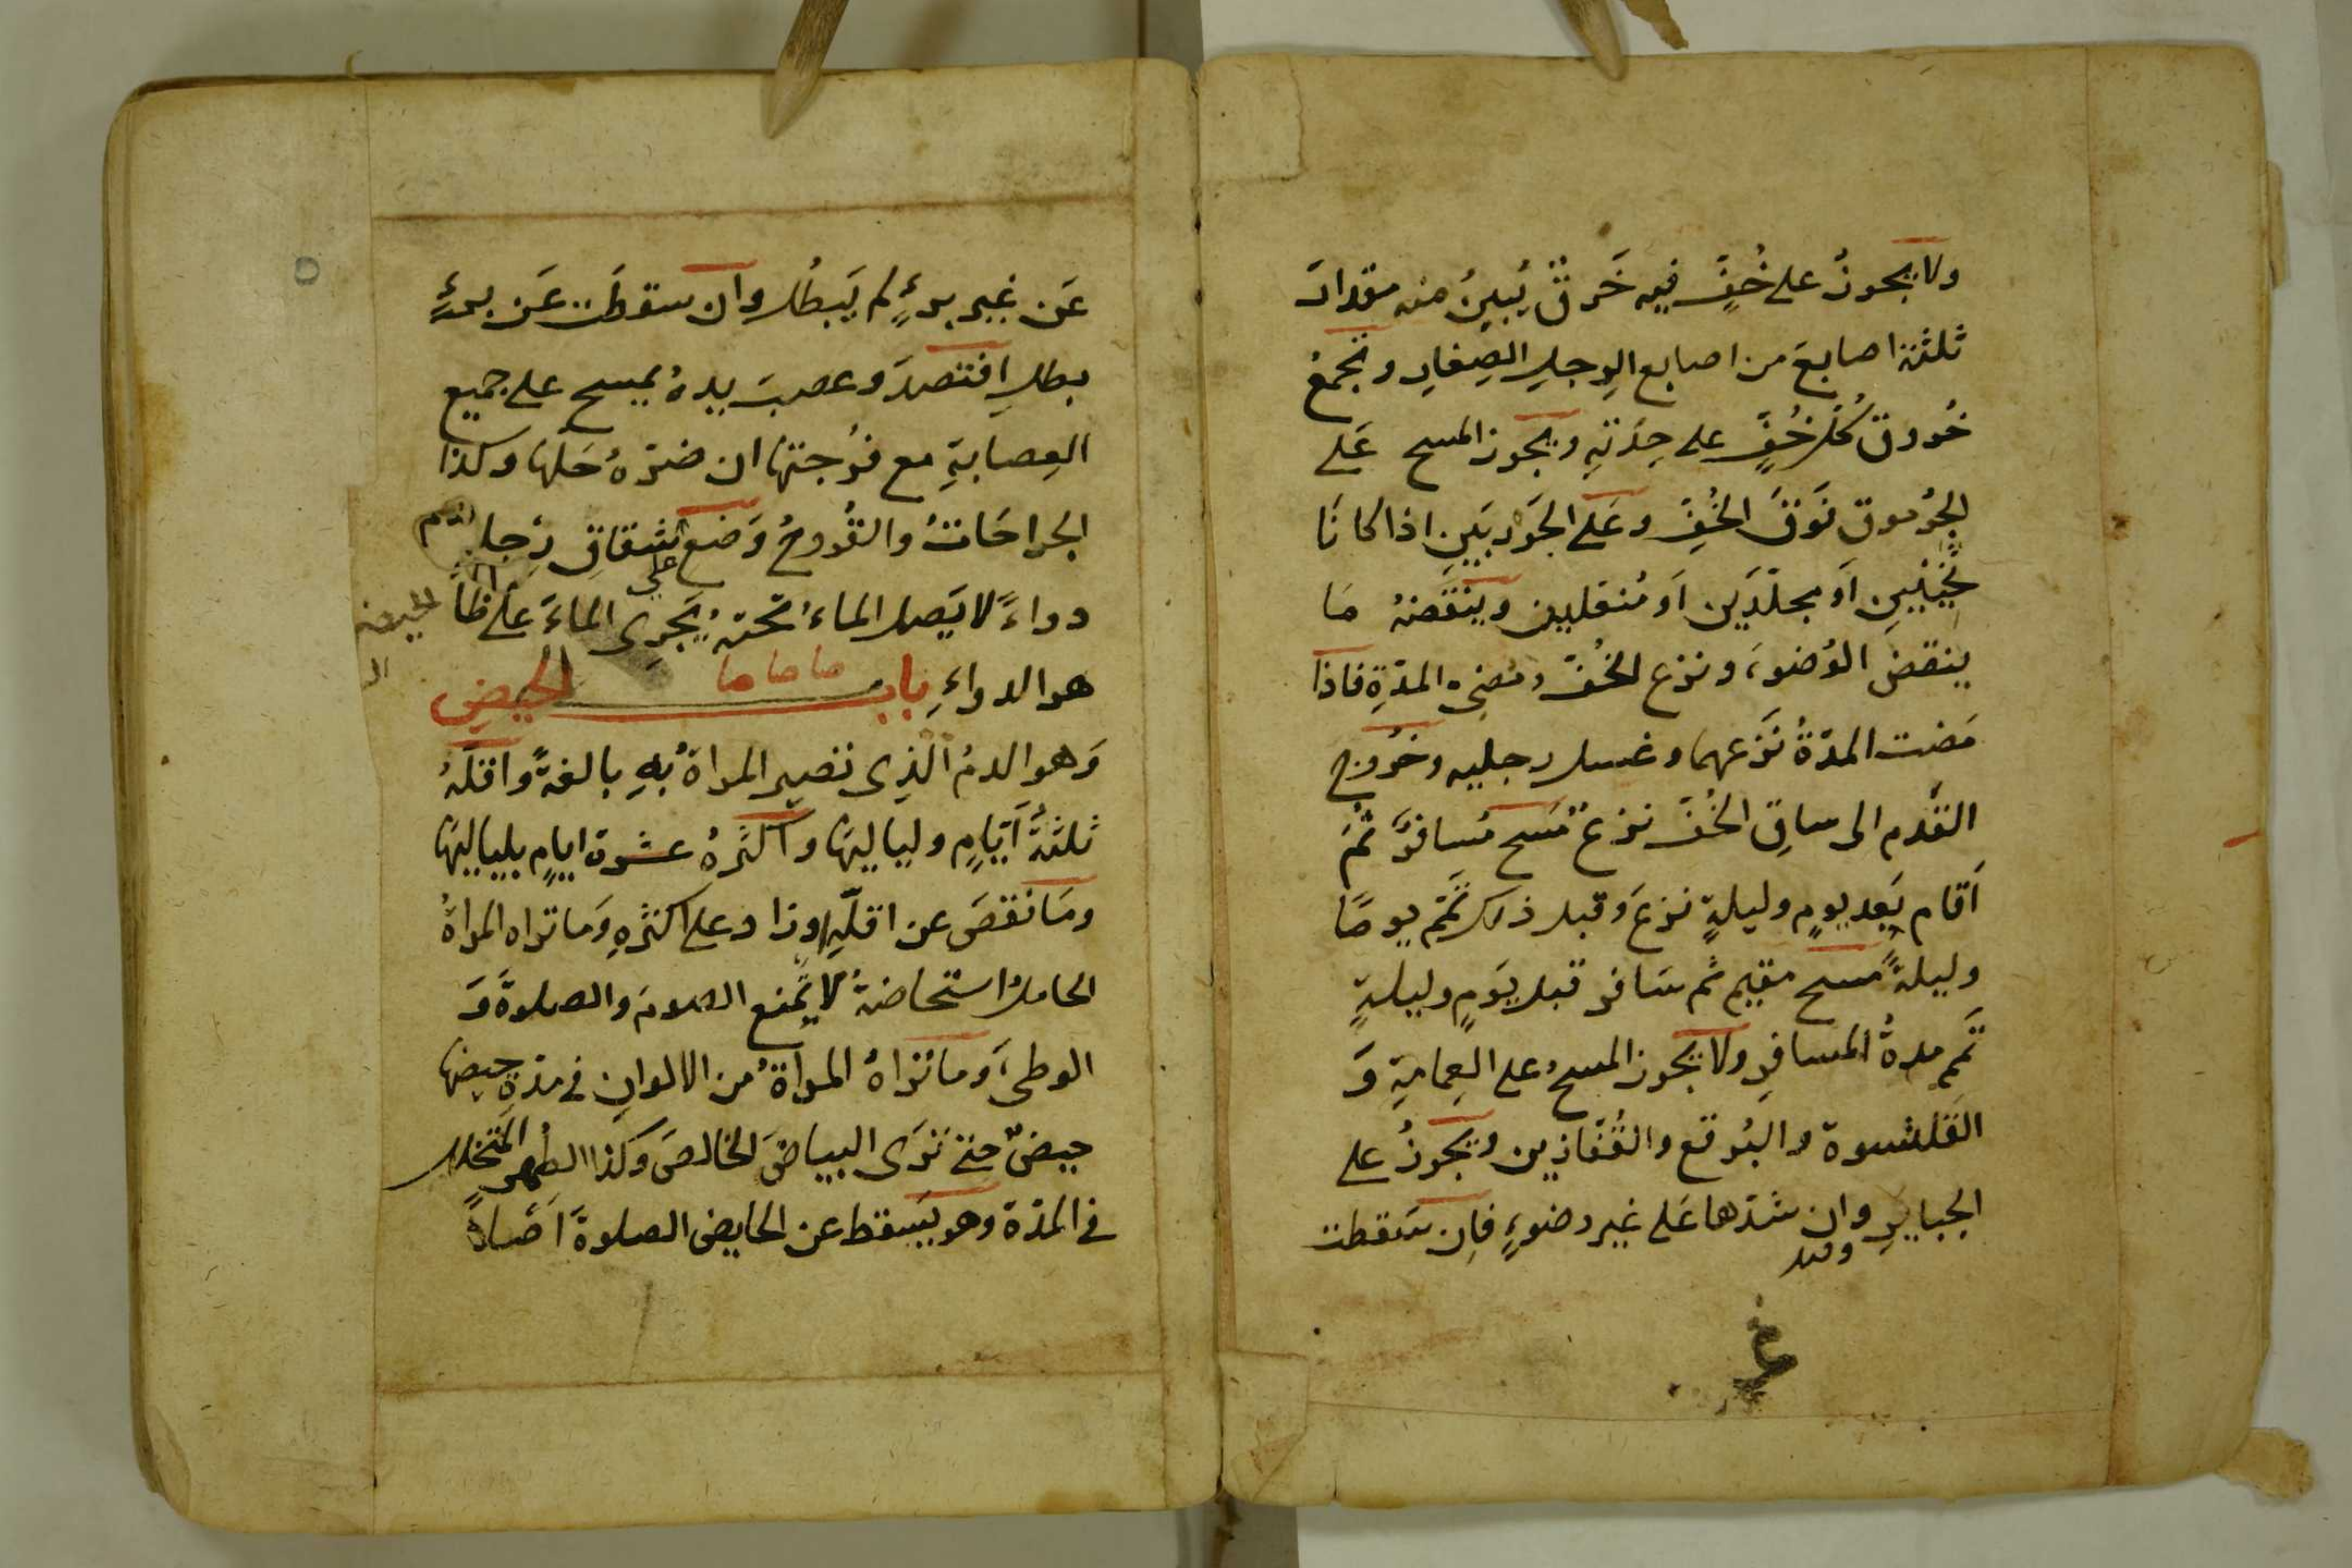 ولا يجوزُ على خُفٍّ فيه خَرقٌ يُبينُ منه مقدارَ
ثلثة اصابعَ من اصابع الرِجلِ الصِغارِ وتجمعُ
خُروق كُلِّ خُفٍّ على حِدَتِهِ ويجوز المسح عَلى
الجُرموق فَوقَ الخُفِّ وعَلى الجَوربَينِ اذا كانَا
ثخينَيِن اَو مجلّدَين اَو مُنعلين وينقضهُ مَا
ينقضَ الوُضوءَ ونزع الخُفّ ومُضِىُّ المدّةِ فاذا
مَضت المدّةُ نَزعهما وغسل رجليه وخروج
القَدم الى ساقِ الخُفّ نزعٌ مَسح مُسافرٌ ثمَّ
اَقام بَعد يومٍ وليلةٍ نزعَ وقبل ذلك تمّم يومًا
وليلةً مسح مقيم ثم سَافر قبل يَومٍ وليلةٍ
تَمّم مدةُ المسافرِ ولا يجوز المسحُ على العِمامةِ وَ
القَلنسوة والبُرقع والقُفّازين ويجوزُ على
الجبايرِ وان شدّها عَلى غير وضوءٍ فاِن سَقطت
عَن غير برءٍ لم يَبطُل وان سقطَت عَن برءٍ
بطل افتصدَ وعصبَ يدهُ يمسح على جميع
العِصابةِ مع فرُجتها ان ضرّهُ حَلها وكذا
الجراحَاتُ والقُروحُ وَضع على شقاقِ رِجلٍ
دواءً لا يَصل الماءُ تحتهُ يَجرِى الماءَ عَلى ظا
هر الدواءِ بابــــــ الحيضِ
وَهو الدمُ الّذِى تصير المراةُ بهِ بالغةً واقلّهُ
ثلثةُ اَيّامٍ ولياليهَا واكثرُهُ عشرة ايامٍ بلياليهَا
ومَا نقصَ عن اقلّهِ او زاد على اكثرِهِ وَما تراه المراةُ
الحاملُ استحاضةُ لا يمنع الصومَ والصلوةَ وَ
الوطىَ وَما تراهُ المراةُ من الالوانِ في مدّةِ حيضِها
حيضٌ حتى تَرَى البياضَ الخالصَ وكذا الطُهر المتخلل
في المدّة وهو يَسقط عن الحايض الصلوةَ اَصلاً